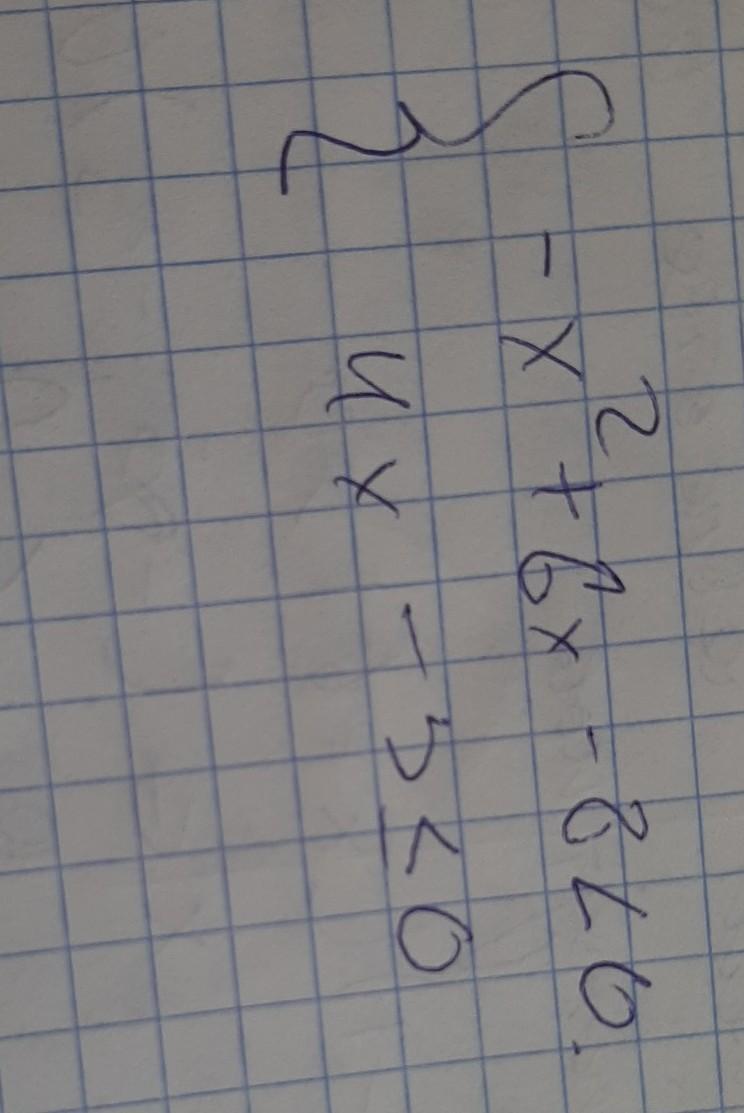 { -x² + 6x - 8 < 0.
4x - 3 ≤ 0